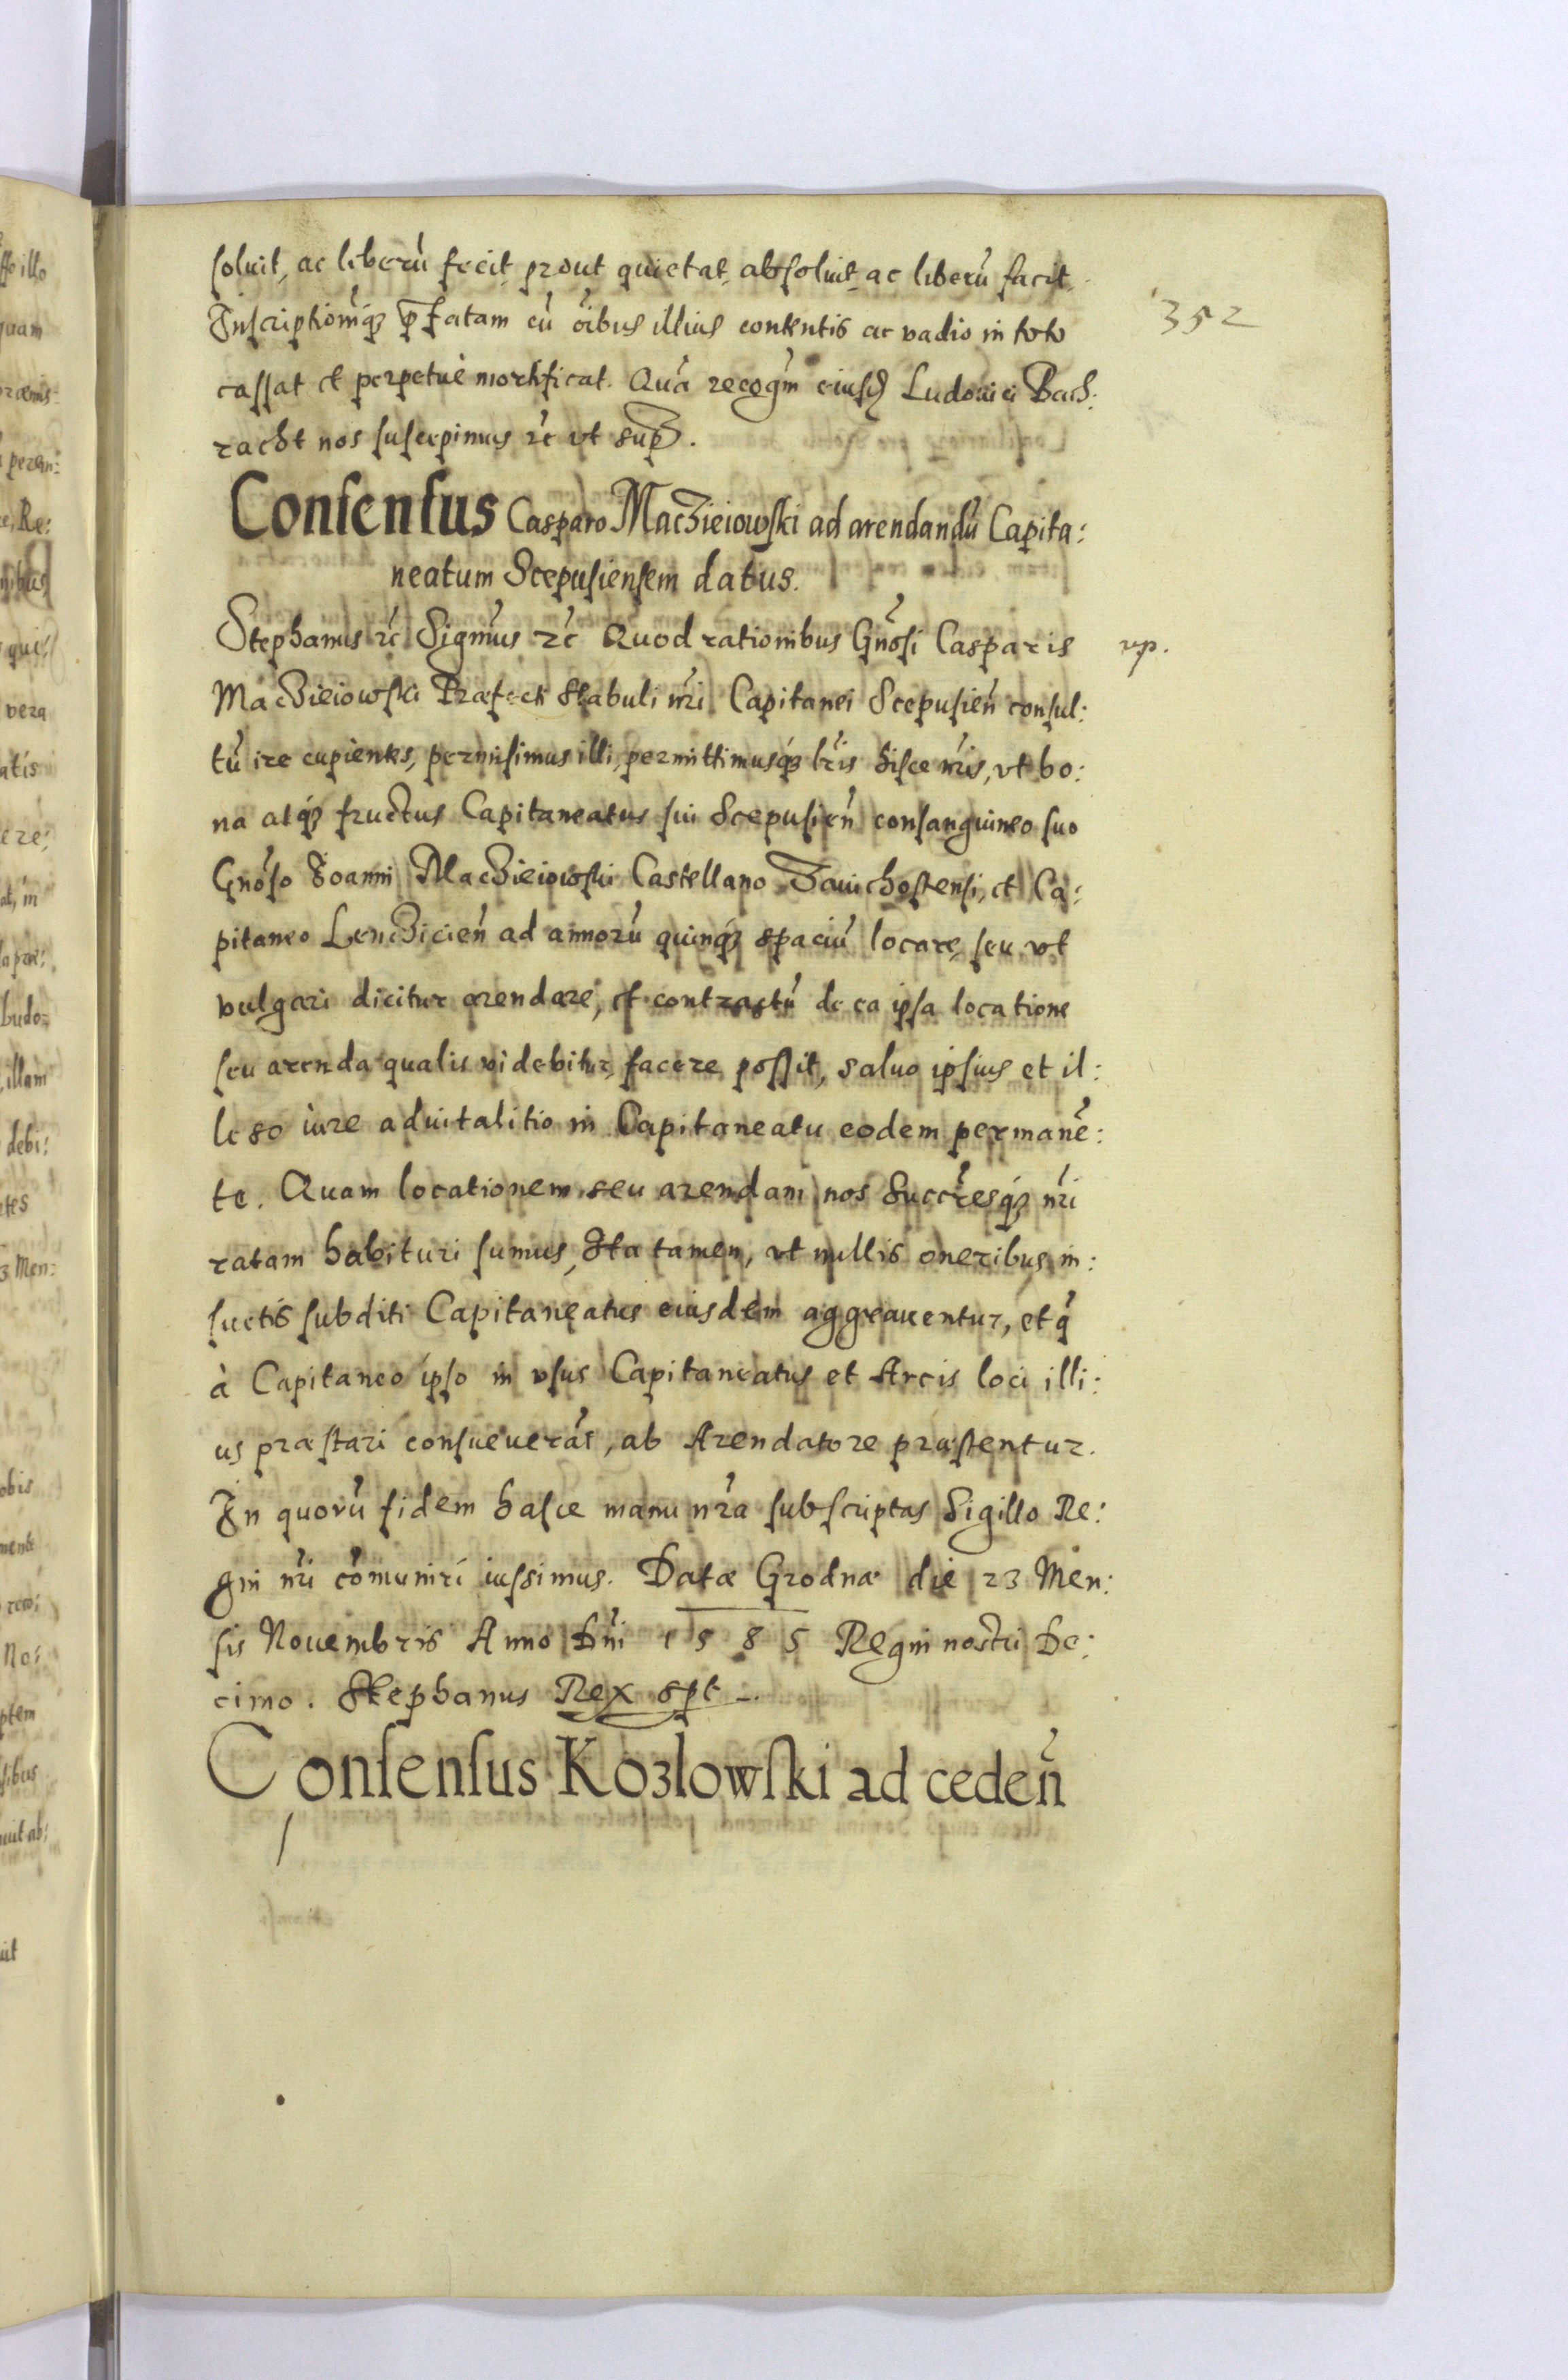 soluit, ac liberũ fecit, prout quietat, absoluit, ac liberũ facit,
Inscriptiom̃q; p̃fatam cũ oĩbus illius contentis ac vadio in toto
cassat et perpetuè mortificat. Quã recogm̃ eiusd Ludouici Bach:
racht nos suscepimus rc̃ vt sup.
352
Consensus Casparo Maczieiowski ad arendandũ Capita:
neatum Scepusiensem datus.
Stephanus rc̃ Sigm̃us rc̃ Quod rationibus Gnõsi Casparis
vp.
Macziejowski Præfecti stabuli nr̃i Capitanei Scepusien̄ consul:
tũ ire cupientes, permisimus illi, permittimusq; lr̃is hisce nr̃is, vt bo:
na atq; fructus Capitaneatus sui Scepusien̄ consanguineo suo
Gnõso Joanni Macziejowski Castellano Zauichostensi, et Ca:
pitaneo Lenczicien̄ ad annorũ quinq; spaciũ locare, seu vt
vulgari dicitur arendare, et contractũ de ea ipsa locatione
seu arenda qualis videbitur, facere possit, saluo ipsius et il:
leso iure aduitalitio in Capitaneatu eodem permanẽ:
te. Quam locationem seu arendam nos Succr̃esq; nr̃i
ratam habituri sumus, Ita tamen, vt nullis oneribus in:
suetis subditi Capitaneatus eiusdem aggrauentur, et q̃
à Capitaneo ipso in vsus Capitaneatus et Arcis loci illi:
us præstari consueuerãt, ab Arendatore præstentur.
In quorũ fidem hasce manu nr̃a subscriptas Sigillo Re:
gni nr̃i cõmuniri iussimus. Datæ Grodnæ die 23 Men:
sis Nouembris Anno Dni 1585 Regni nostri De:
cimo. Stephanus Rex spt
Consensus Kozlowski ad ceden̄